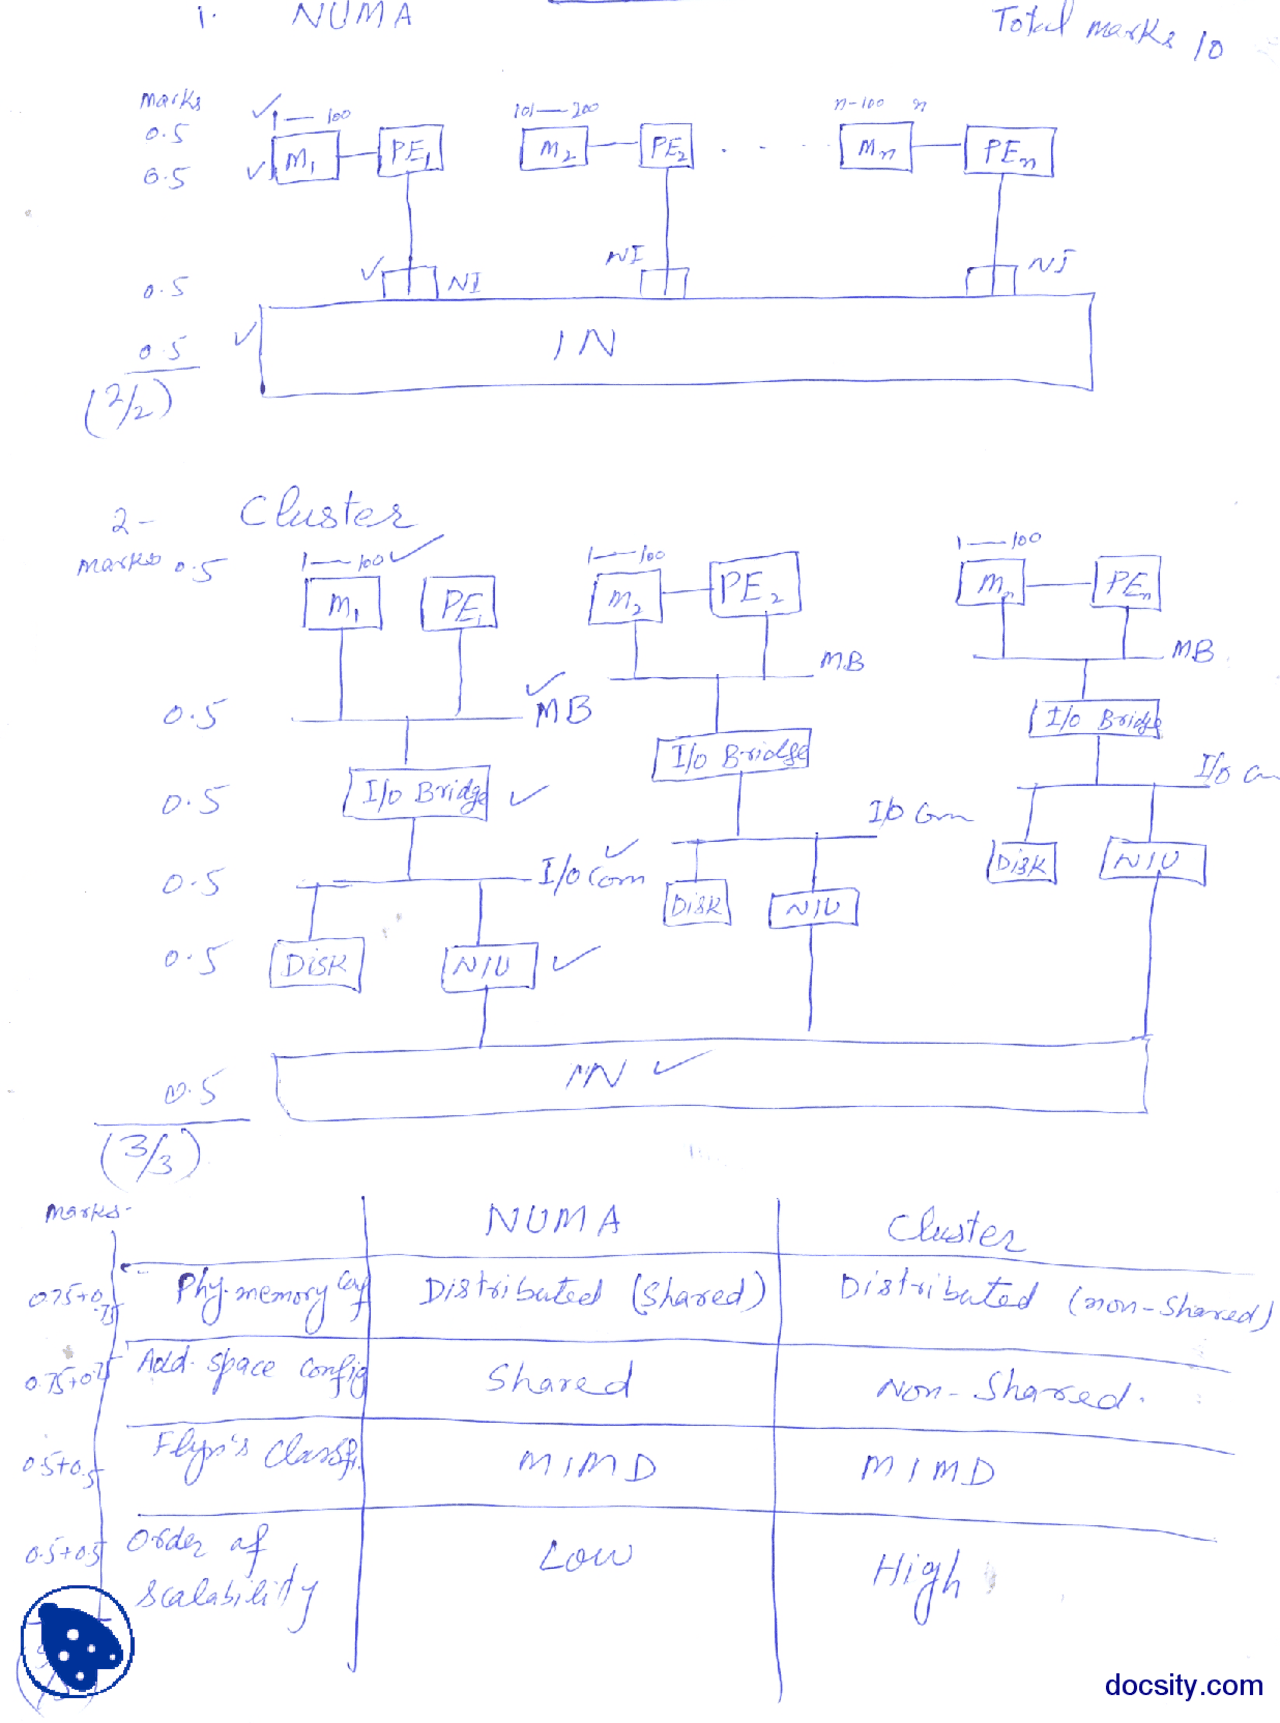 1. NUMA
Total marks 10
marks
0.5
0.5
0.5
0.5
(2/2)
1 — 100
M1
PE1
101 — 200
M2
PE2
. . . . .
n-100 n
Mn
PEn
NI
NI
NI
IN
2- Cluster
marks 0.5
0.5
0.5
0.5
0.5
0.5
(3/3)
1 — 100
M1
PE1
MB
I/o Bridge
I/o Com
Disk
NIU
1 — 100
M2
PE2
MB
I/o Bridge
I/o Com
Disk
NIU
1 — 100
Mn
PEn
MB
I/o Bridge
I/o
Disk
NIU
IN
marks
NUMA
Cluster
0.75+0.75
Phy. memory Conf
Distributed (Shared)
Distributed (non-Shared)
0.75+0.75
Add. space Config
Shared
Non-Shared.
0.5+0.5
Flyn's Classifi.
MIMD
MIMD
0.5+0.5
Order of scalability
Low
High
docsity.com